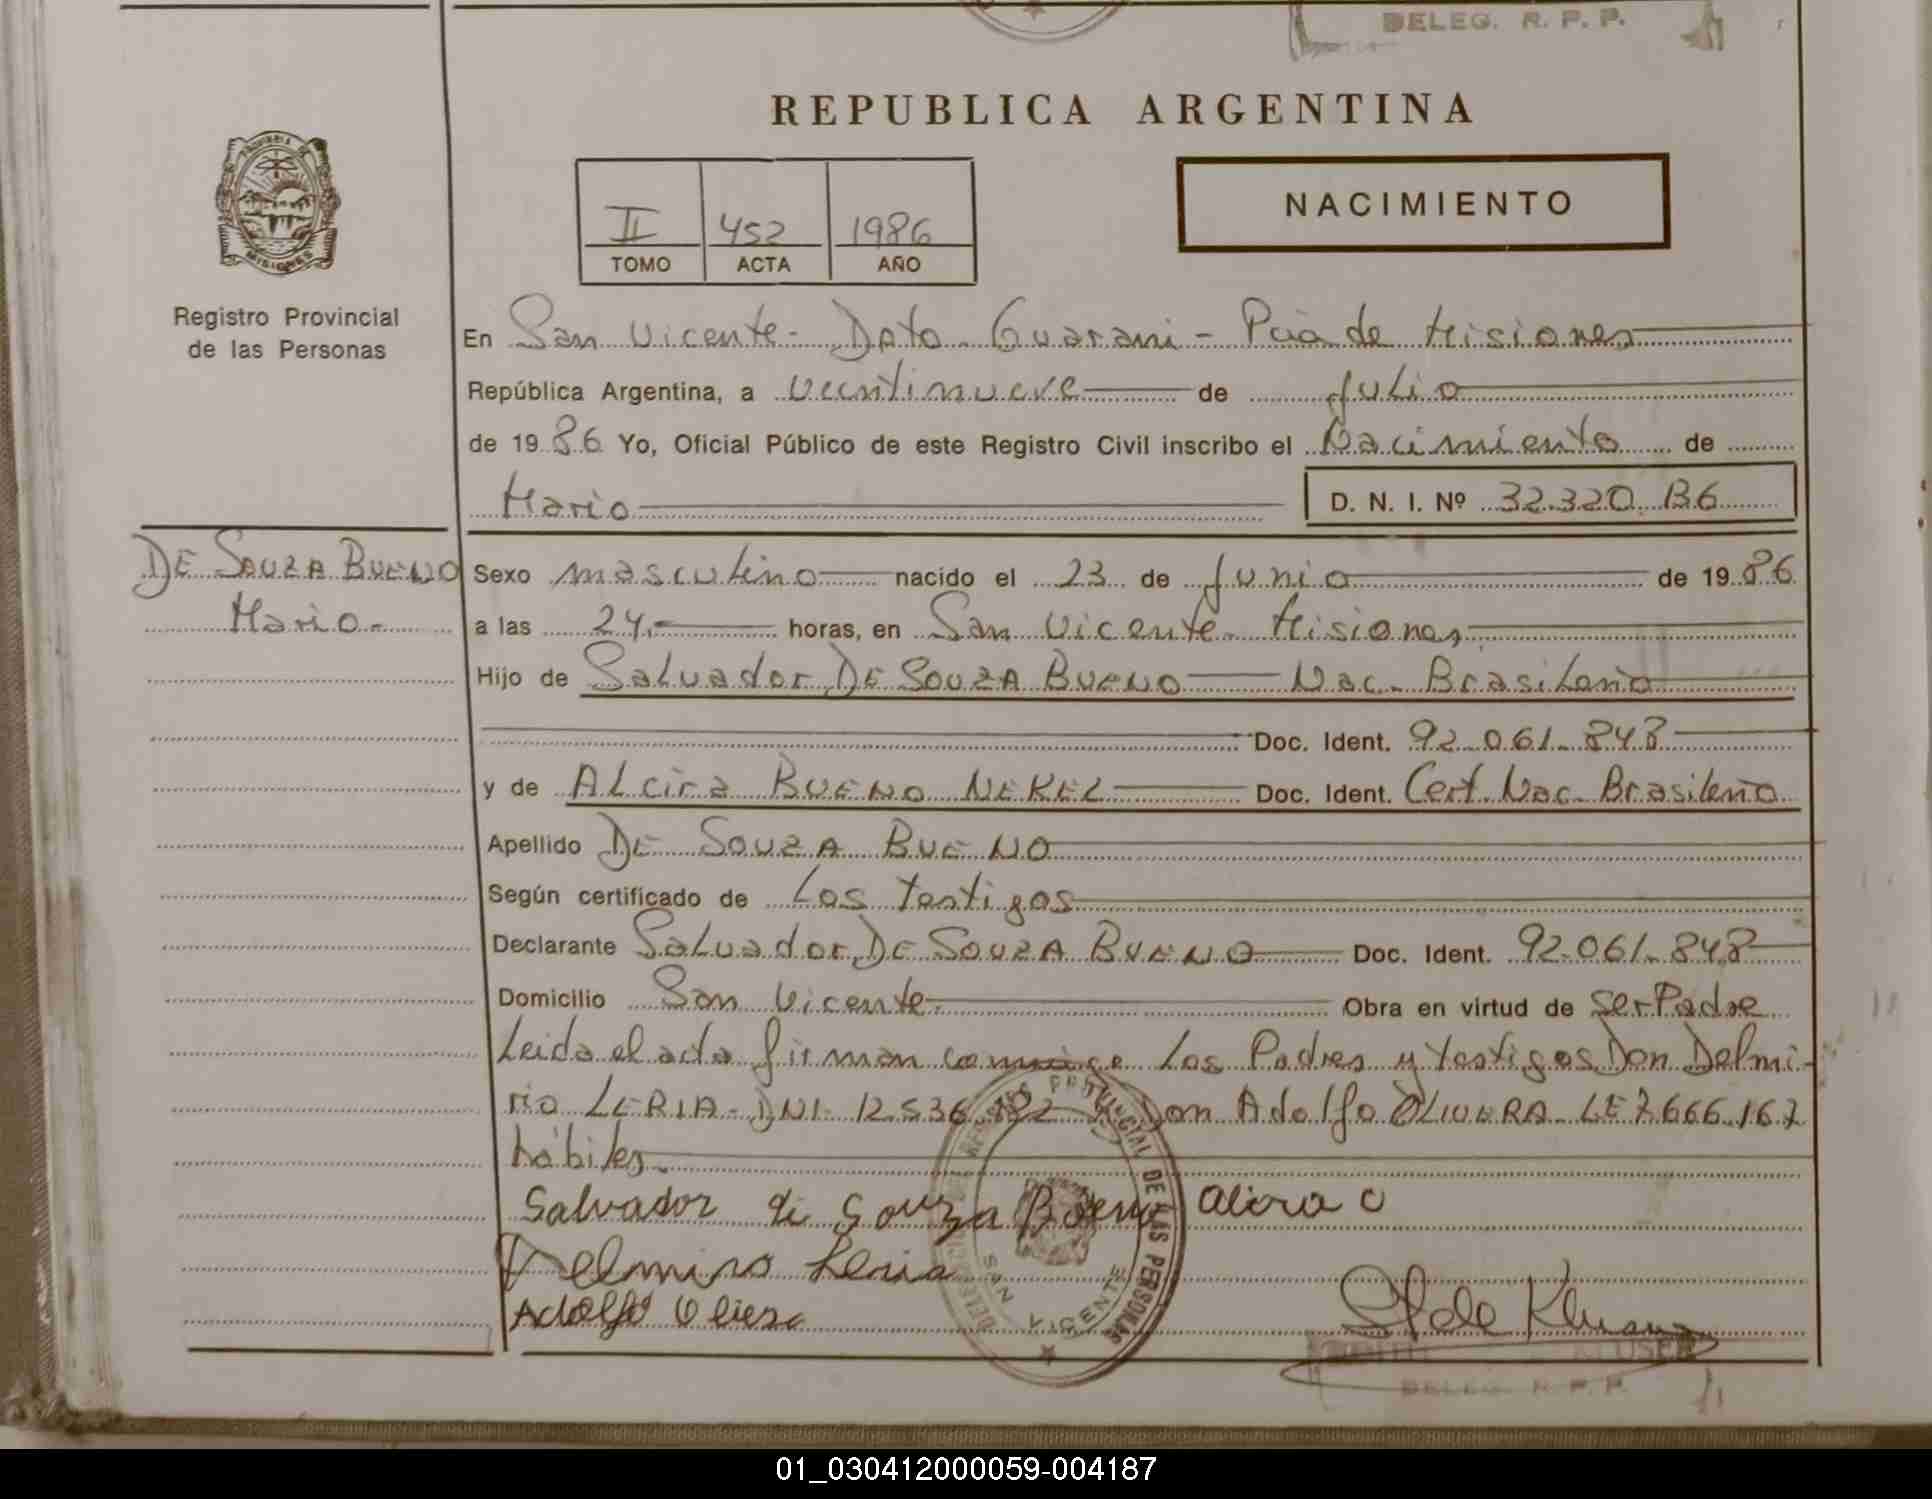 DELEG. R. P. P.
REPUBLICA ARGENTINA
NACIMIENTO
II 452 1986
TOMO ACTA AÑO
PROVINCIA DE
MISIONES
Registro Provincial
de las Personas
En San Vicente - Dpto. Guarani - Pcia de Misiones
República Argentina, a veintinueve de Julio
de 1986 Yo, Oficial Público de este Registro Civil inscribo el Nacimiento de
Mario D. N. I. Nº 32.320.136
DE SOUZA BUENO
Mario.-
Sexo masculino nacido el 23 de Junio de 1986
a las 24.- horas, en San Vicente - Misiones
Hijo de Salvador DE SOUZA BUENO Nac. Brasileño
Doc. Ident. 92.061.848
y de Alcira BUENO NEKEL Doc. Ident. Cert. Nac. Brasileño
Apellido DE SOUZA BUENO
Según certificado de Los testigos
Declarante Salvador DE SOUZA BUENO Doc. Ident. 92.061.848
Domicilio San Vicente Obra en virtud de ser Padre
Leida el acta firman conmigo Los Padres y testigos Don Delmi-
rio LERIA - DNI - 12.536.192 y Don Adolfo OLIVERA LE 7.666.167
hábiles.
Salvador di Souza Bueno Alcira
Delmiro Leria
Adolfo Olivera
DELEGACION DEL REGISTRO PROVINCIAL DE LAS PERSONAS
SAN VICENTE
DELEG. R. P. P.
01_030412000059-004187